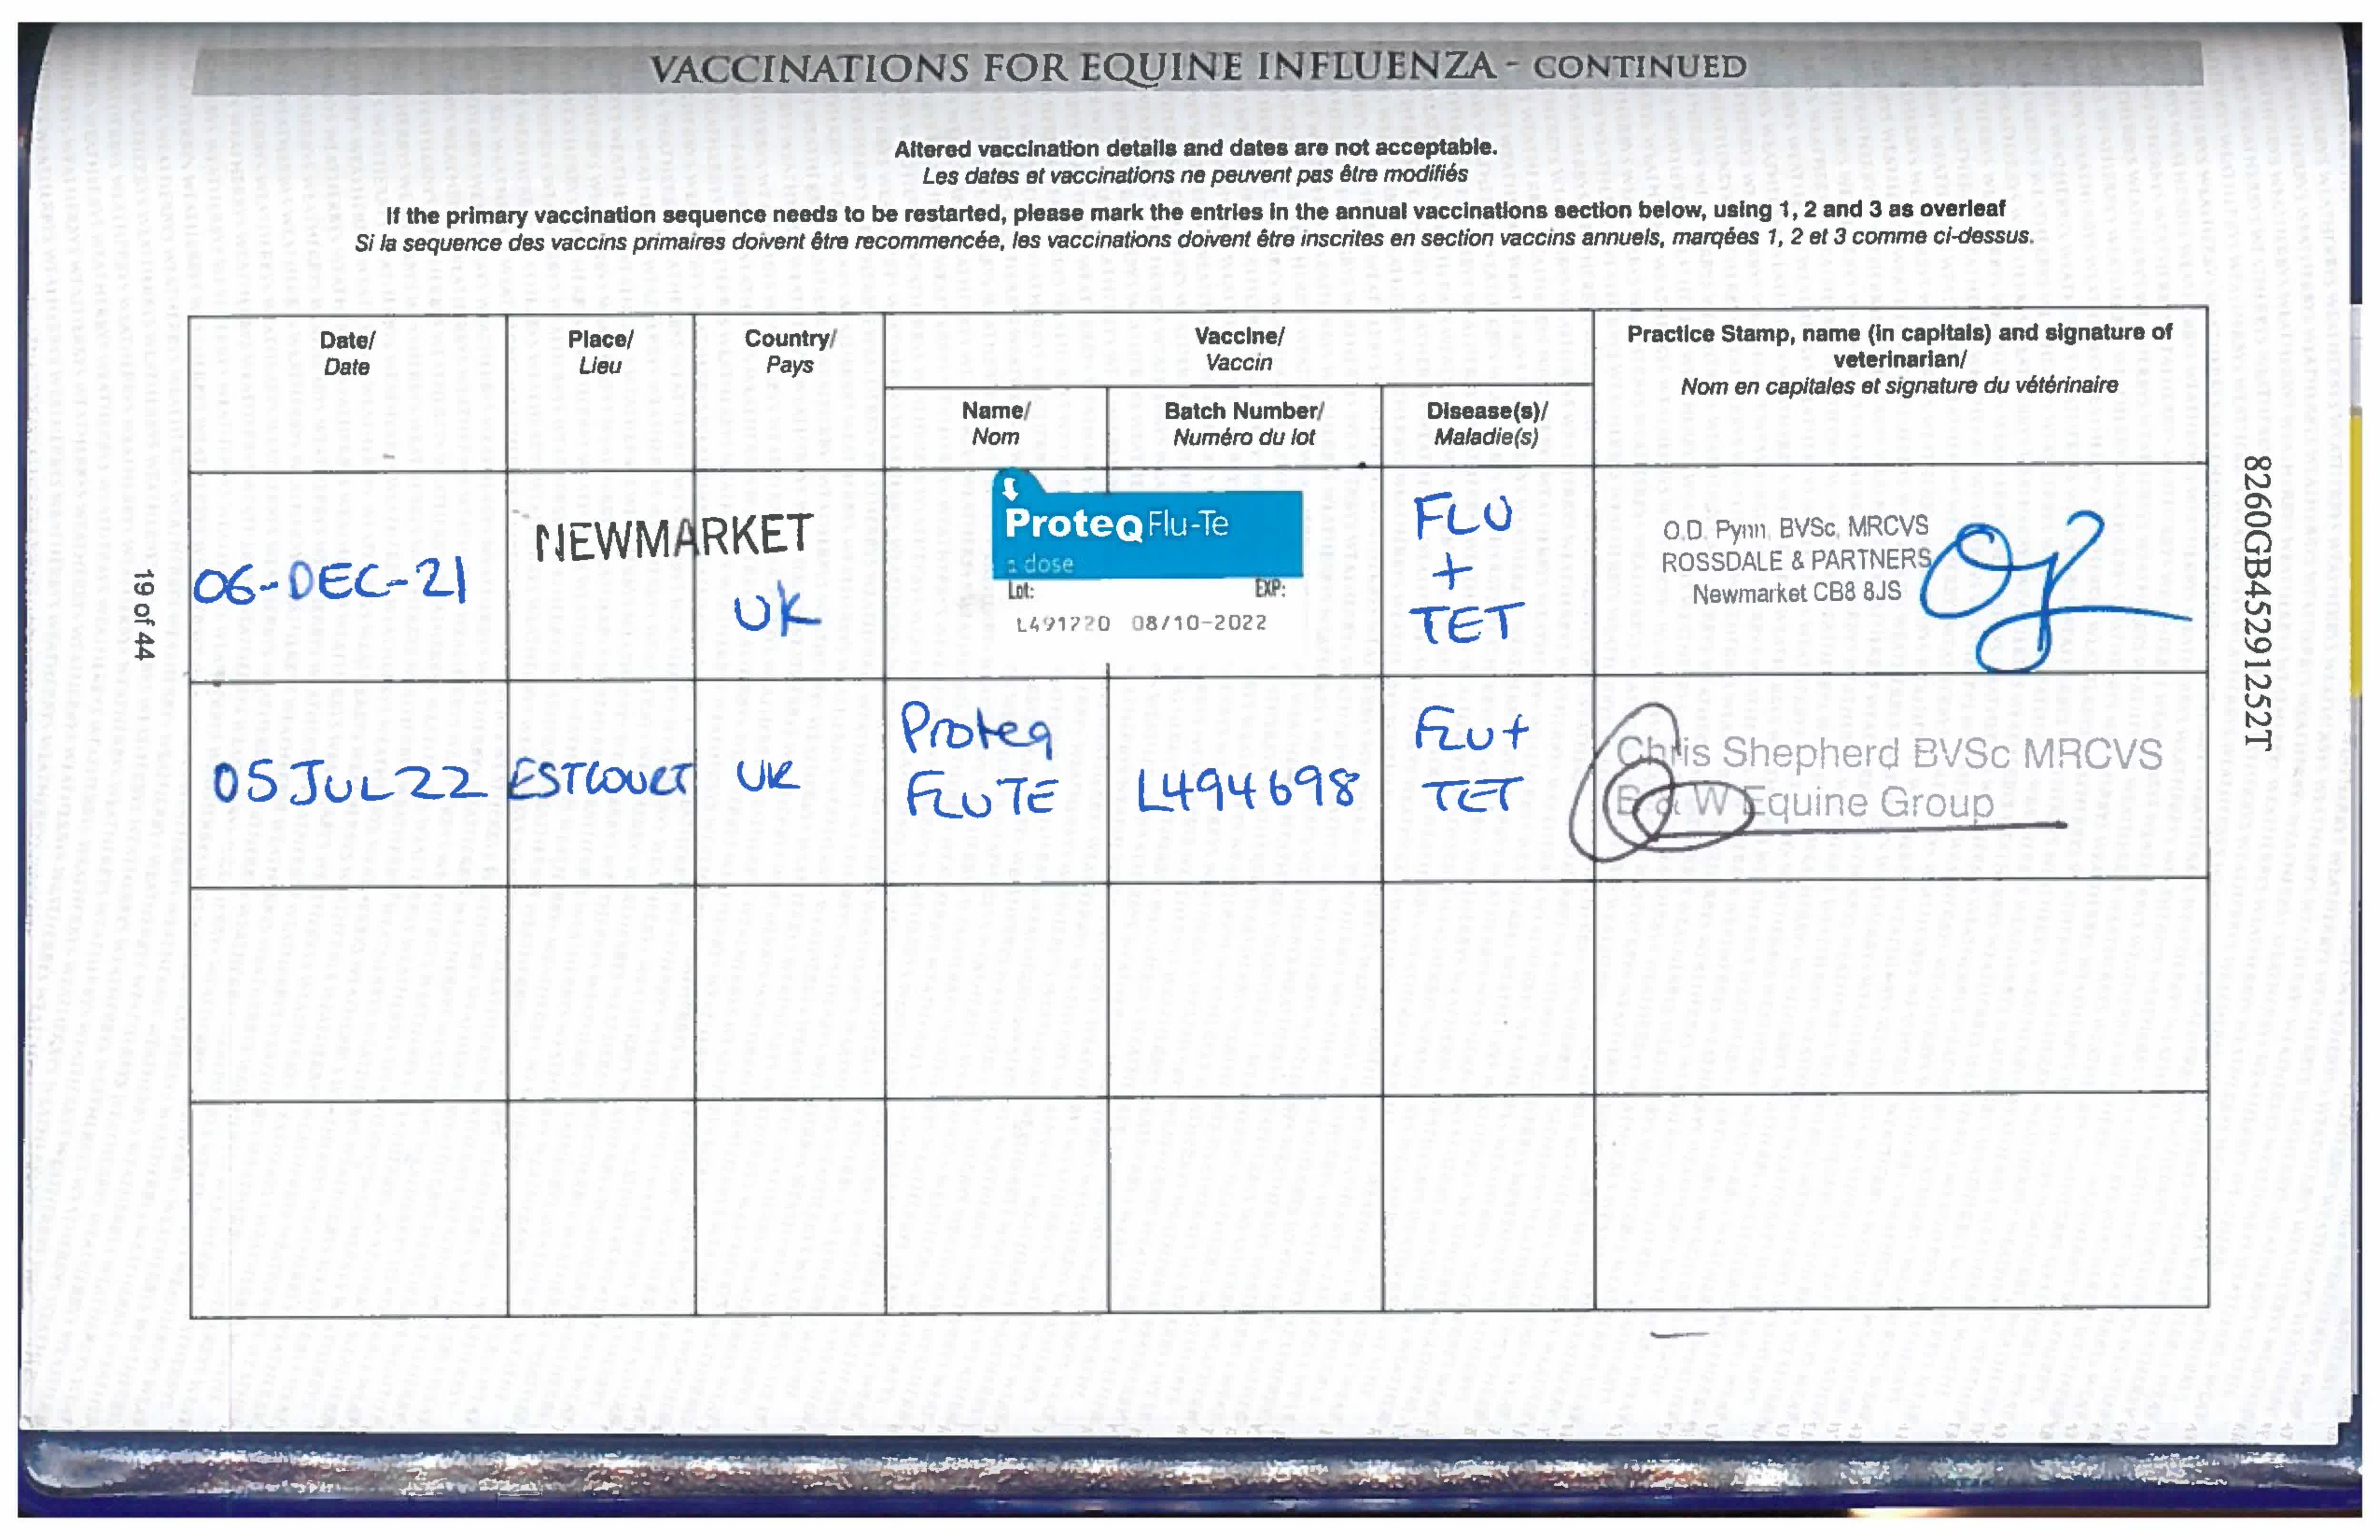 VACCINATIONS FOR EQUINE INFLUENZA - CONTINUED
Altered vaccination details and dates are not acceptable.
Les dates et vaccinations ne peuvent pas être modifiés
If the primary vaccination sequence needs to be restarted, please mark the entries in the annual vaccinations section below, using 1, 2 and 3 as overleaf
Si la sequence des vaccins primaires doivent être recommencée, les vaccinations doivent être inscrites en section vaccins annuels, marqées 1, 2 et 3 comme ci-dessus.
Date/
Date
Place/
Lieu
Country/
Pays
Vaccine/
Vaccin
Name/
Nom
Batch Number/
Numéro du lot
Disease(s)/
Maladie(s)
Practice Stamp, name (in capitals) and signature of
veterinarian/
Nom en capitales et signature du vétérinaire
06-DEC-21
NEWMARKET
UK
ProteqFlu-Te
1 dose
Lot: EXP:
L491220 08/10-2022
FLU
+
TET
O.D. Pynn, BVSc, MRCVS
ROSSDALE & PARTNERS
Newmarket CB8 8JS
05 JUL 22
ESTCOURT
UK
Proteq
FLUTE
L494698
FLU+
TET
Chris Shepherd BVSc MRCVS
B & W Equine Group
19 of 44
8260GB45291252T